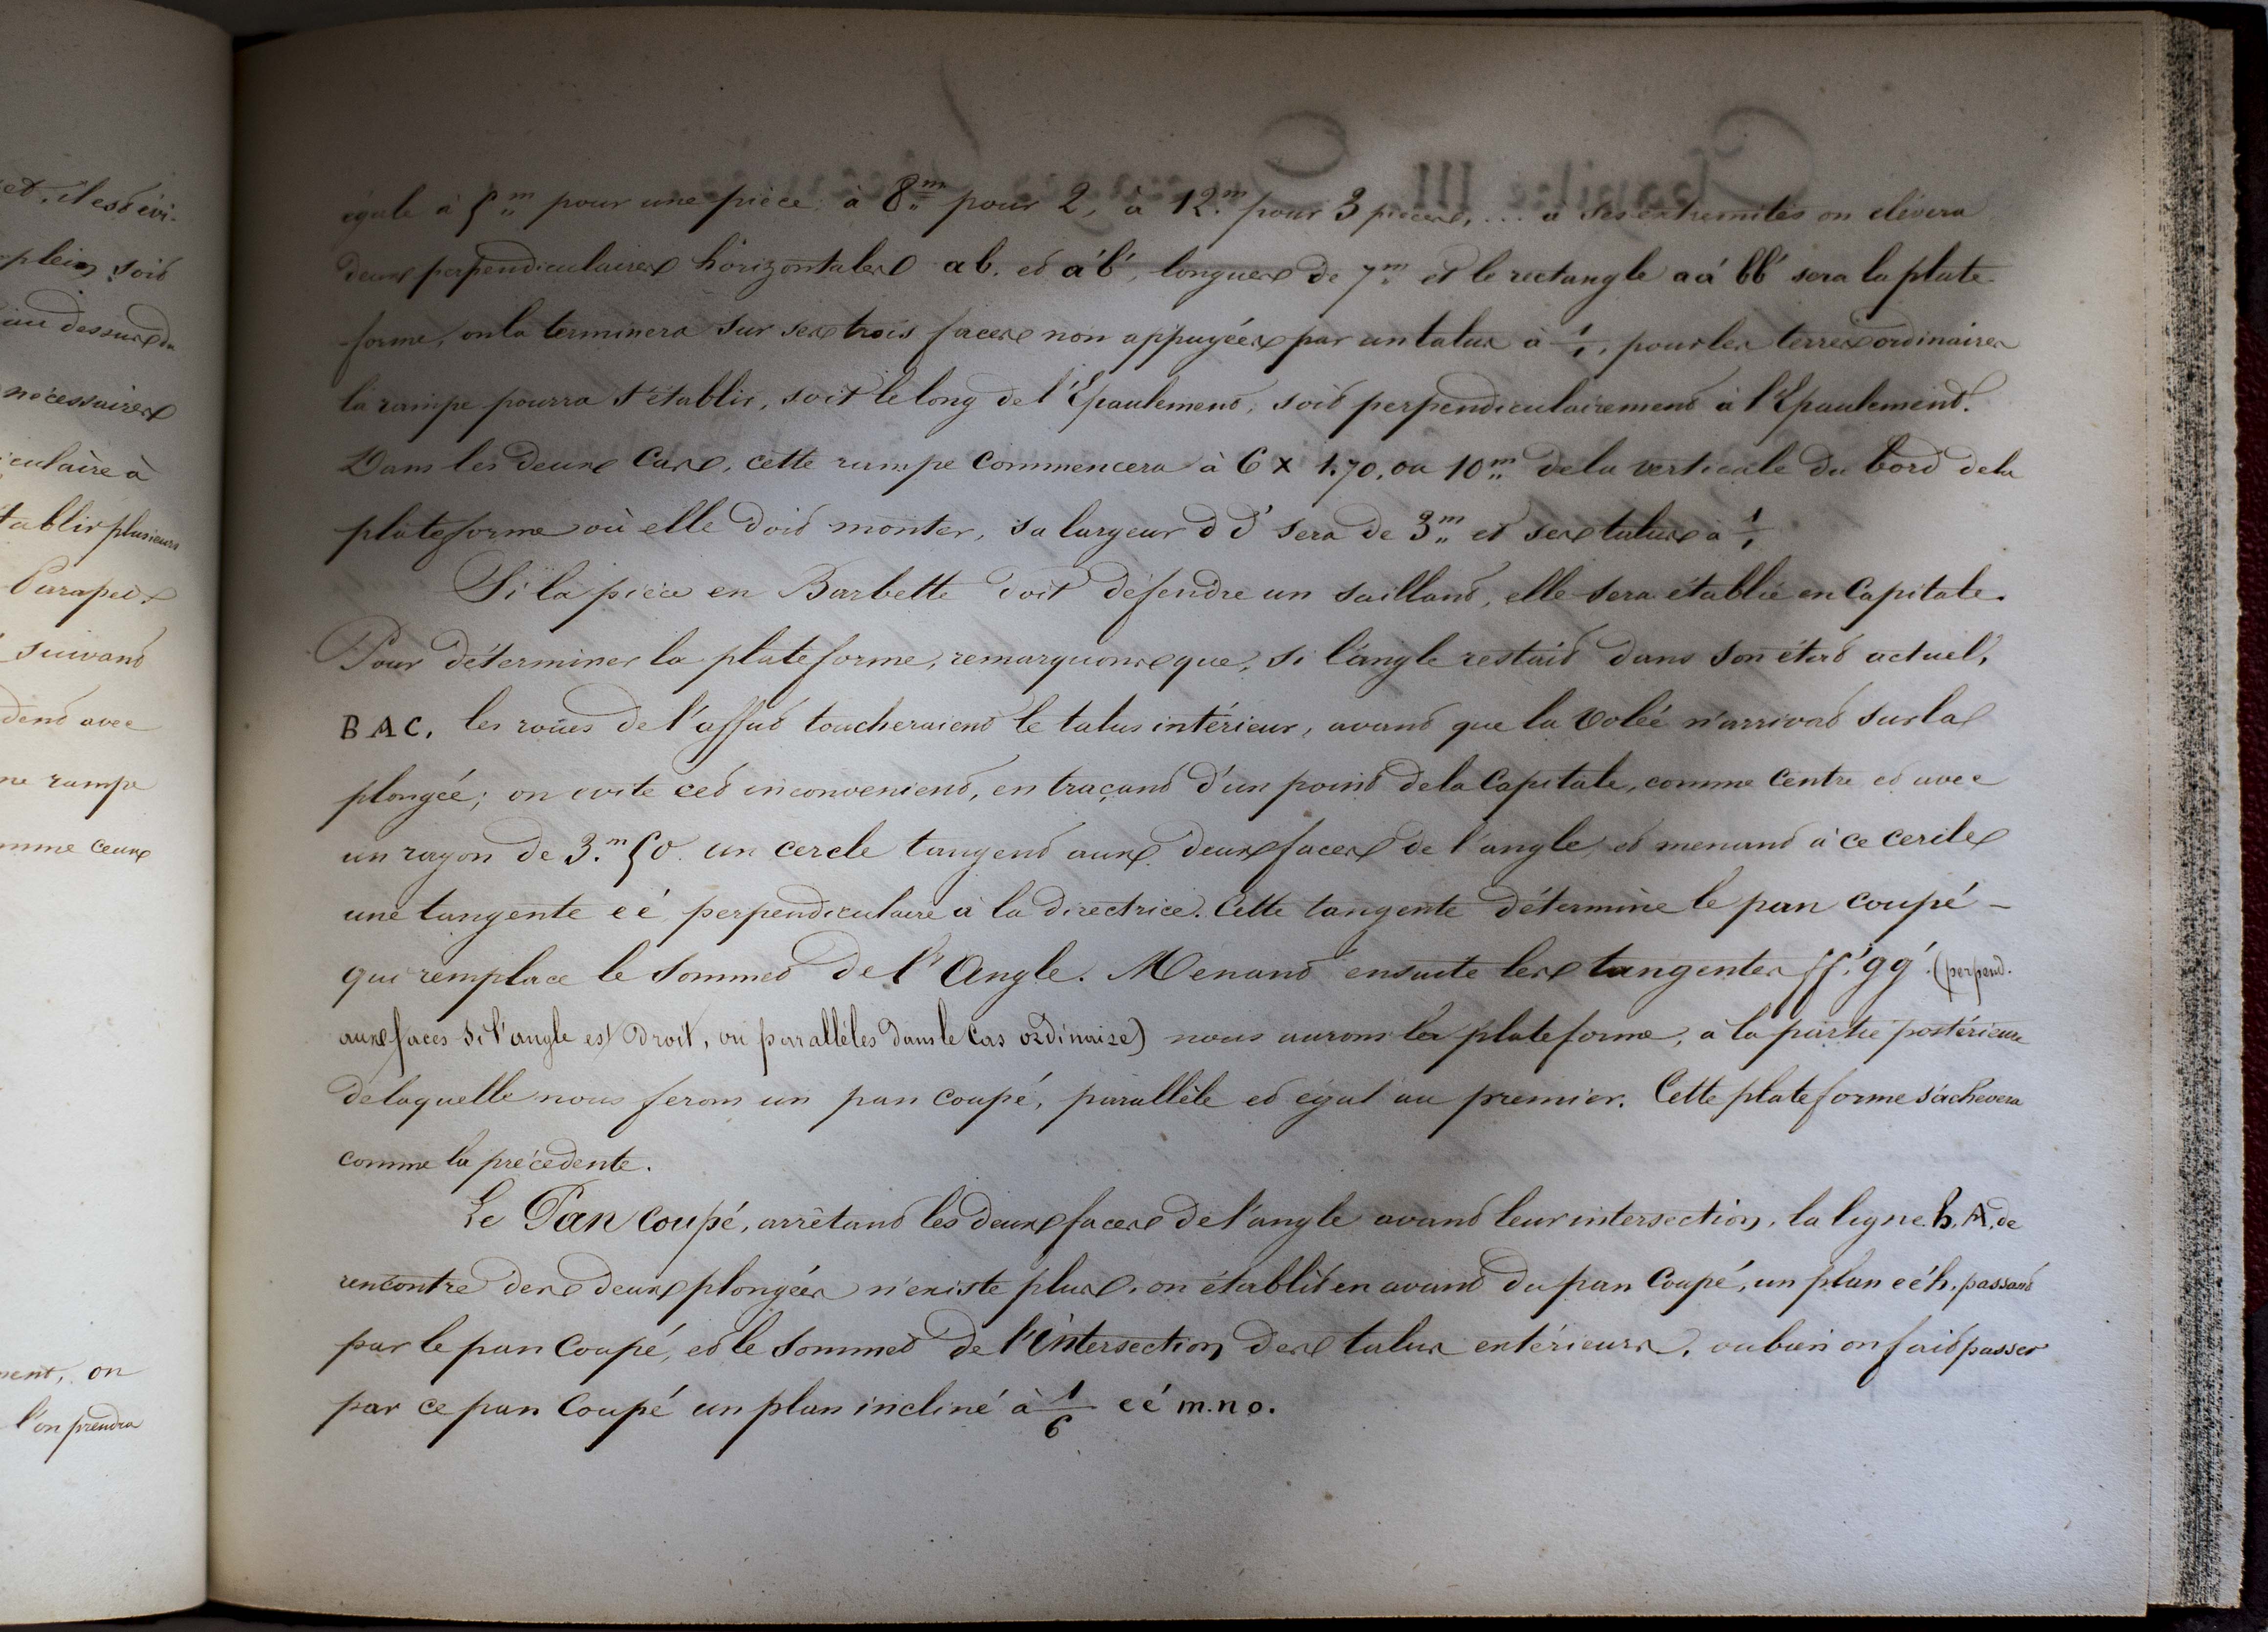 et, il est évi-
plein, soit
au dessus du
nécessaires
iculaire à
tablir plusieurs
Parapet.
suivant
dent avec
ne rampe
mme ceux
ment, on
l'on prendra
égale à 5.m pour une pièce, à 8.m pour 2, à 12.m pour 3 pièces, ... a ses extremités on élèvera
deux perpendiculaires horizontales ab. et a'b', longues de 7.m et le rectangle aa' bb' sera la plate
-forme, on la terminera sur ses trois faces non appuyées par un talus à 1/1, pour les terres ordinaires
la rampe pourra s'établir, soit le long de l'Epaulement, soit perpendiculairement à l'Epaulement.
Dans les deux Cas, cette rampe Commencera à 6 x 1.70, ou 10.m de la verticale du bord de la
plateforme où elle doit monter, sa largeur d d' sera de 3.m et ses talus à 1/1
Si la pièce en Barbette doit défendre un saillant, elle sera établie en Capitale.
Pour déterminer la plateforme, remarquons que, si l'angle restait dans son état actuel,
BAC, les roües de l'affut toucheraient le talus intérieur, avant que la Volée n'arrivat sur la
plongée; on evite cet inconvenient, en traçant d'un point de la Capitale, comme Centre et avec
un rayon de 3.m50. un cercle tangent aux deux faces de l'angle, et menant à ce cercle
une tangente e é, perpendiculaire à la directrice. Cette tangente détermine le pan coupé -
qui remplace le Sommet de l'Angle. Menant ensuite les tangentes ff' gg'. (perpend.
aux faces si l'angle est Droit, ou parallèles dans le Cas ordinaire) nous aurons la plateforme, à la partie postérieure
de laquelle nous ferons un pan coupé, parallèle et égal au premier. Cette plateforme s'achevera
comme la précédente.
Le Pan Coupé, arrêtant les deux faces de l'angle avant leur intersection, la ligne h.A, de
rencontre des deux plongées n'existe plus, on établit en avant du pan Coupé, un plan e é h, passant
par le pan Coupé, et le Sommet de l'intersection des talus extérieurs, ou bien on fait passer
par ce pan Coupé un plan incliné à 1/6 e é m.n o.